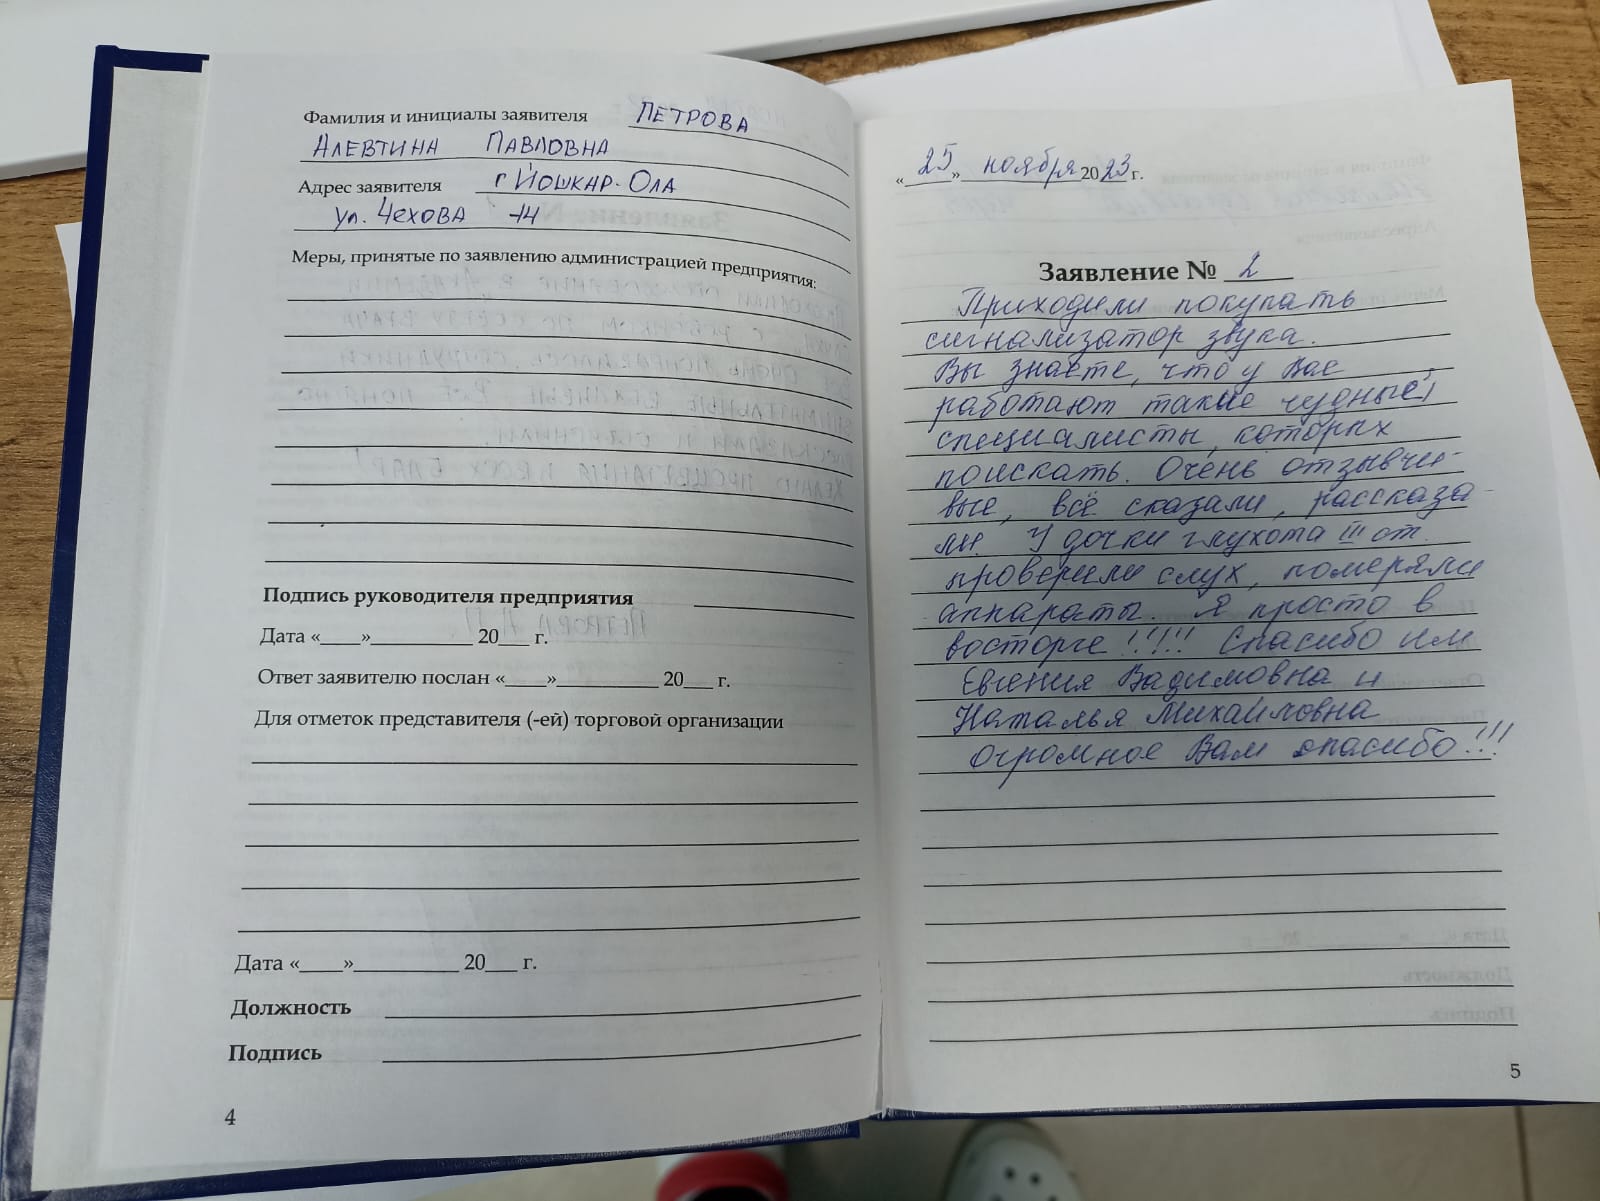 Фамилия и инициалы заявителя ПЕТРОВА
АЛЕВТИНА ПАВЛОВНА
Адрес заявителя г ЙОШКАР-ОЛА
ул. ЧЕХОВА -14
Меры, принятые по заявлению администрацией предприятия:
Подпись руководителя предприятия
Дата «____»__________ 20___ г.
Ответ заявителю послан «____»__________ 20___ г.
Для отметок представителя (-ей) торговой организации
Дата «____»__________ 20___ г.
Должность
Подпись
4
«25» ноября 2023 г.
Заявление № 2
Приходили покупать
сигнализатор звука.
Вы знаете, что у Вас
работают такие чудные
специалисты, которых
поискать. Очень отзывчи-
вые, всё сказали, рассказа-
ли. У дочки глухота III ст.
проверили слух, померяли
аппараты. Я просто в
восторге !!!!! Спасибо им
Евгения Вадимовна и
Наталья Михайловна
огромное Вам спасибо!!!
5